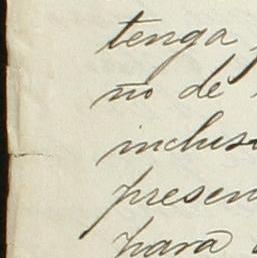 tenga
no de
inclus
presen
para